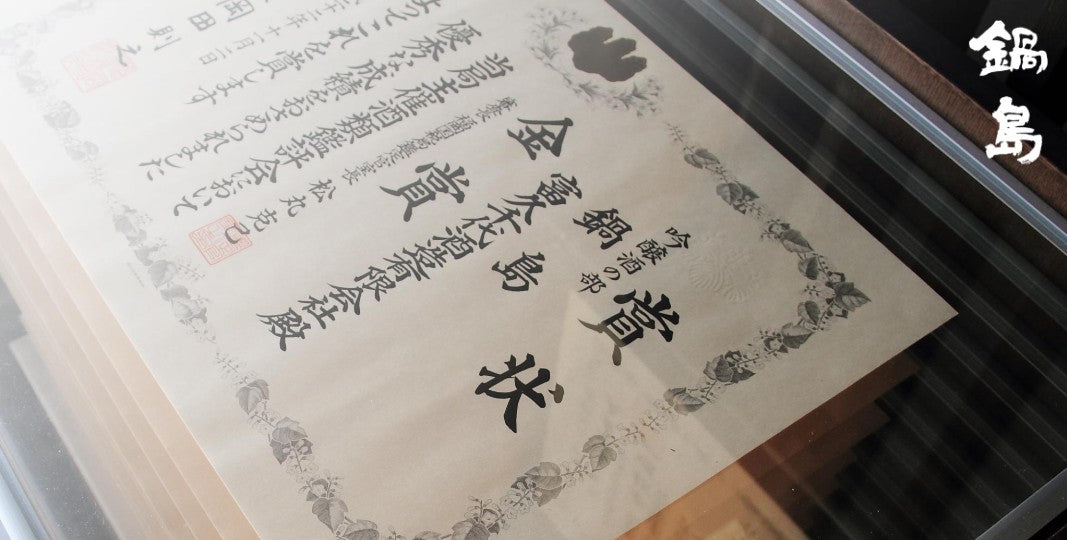 鍋島
賞状
吟醸酒の部
鍋島
富久千代酒造有限会社殿
金賞
福岡国税局鑑定官室長 松丸克己
当局主催酒類鑑評会において
優秀な成績をおさめられました
よってこれを賞します
二年十一月二日
岡田則之